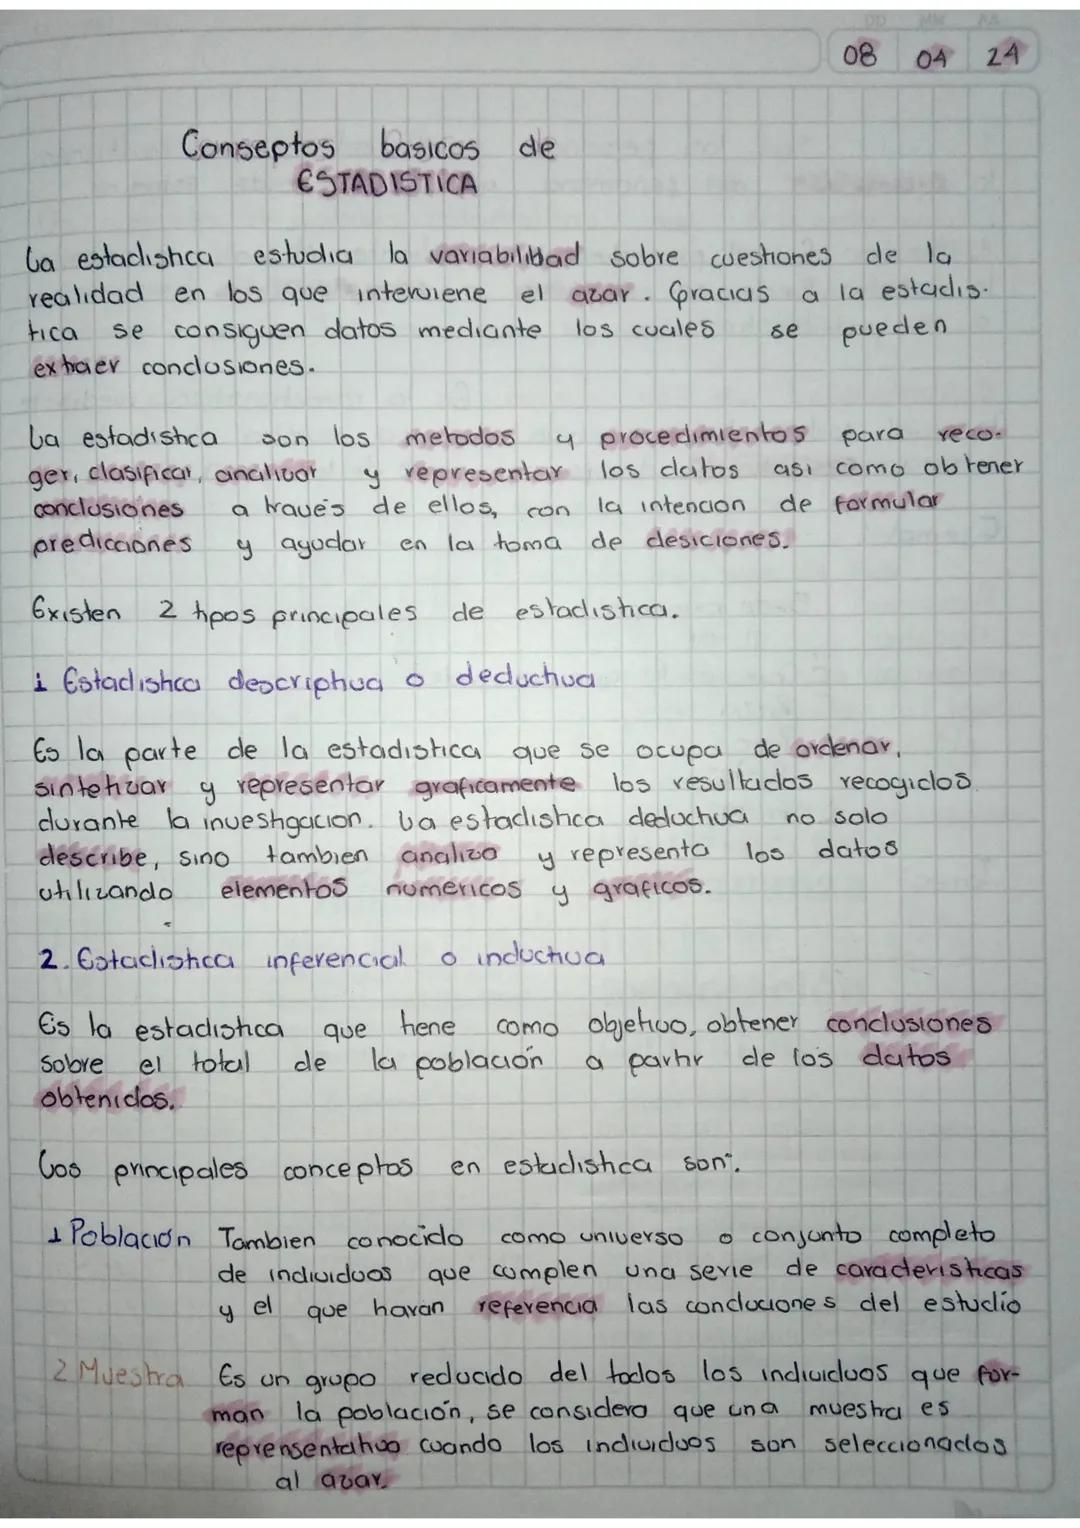 DD MM AA
08 04 24
Conseptos basicos de
ESTADISTICA
La estadistica estudia la variabilidad sobre cuestiones de la
realidad en los que interviene el azar. Gracias a la estadis-
tica se consiguen datos mediante los cuales se pueden
extraer conclusiones.
La estadistica son los metodos y procedimientos para reco-
ger, clasificar, analizar y representar los datos asi como obtener
conclusiones a través de ellos, con la intencion de formular
predicciones y ayudar en la toma de desiciones.
Existen 2 tipos principales de estadistica.
1 Estadistica descriptiva o deductiva
Es la parte de la estadistica que se ocupa de ordenar,
sintetizar y representar graficamente los resultados recogidos
durante la investigacion. La estadistica deductiva no solo
describe, sino tambien analiza y representa los datos
utilizando elementos numericos y graficos.
2. Estadistica inferencial o inductiva
Es la estadistica que tiene como objetivo, obtener conclusiones
sobre el total de la población a partir de los datos
obtenidos.
Los principales conceptos en estadistica son:
1 Población Tambien conocido como universo o conjunto completo
de individuos que cumplen una serie de caracteristicas
y el que haran referencia las concluciones del estudio
2 Muestra Es un grupo reducido del todos los individuos que for-
man la población, se considera que una muestra es
reprensentativo cuando los individuos son seleccionados
al azar.